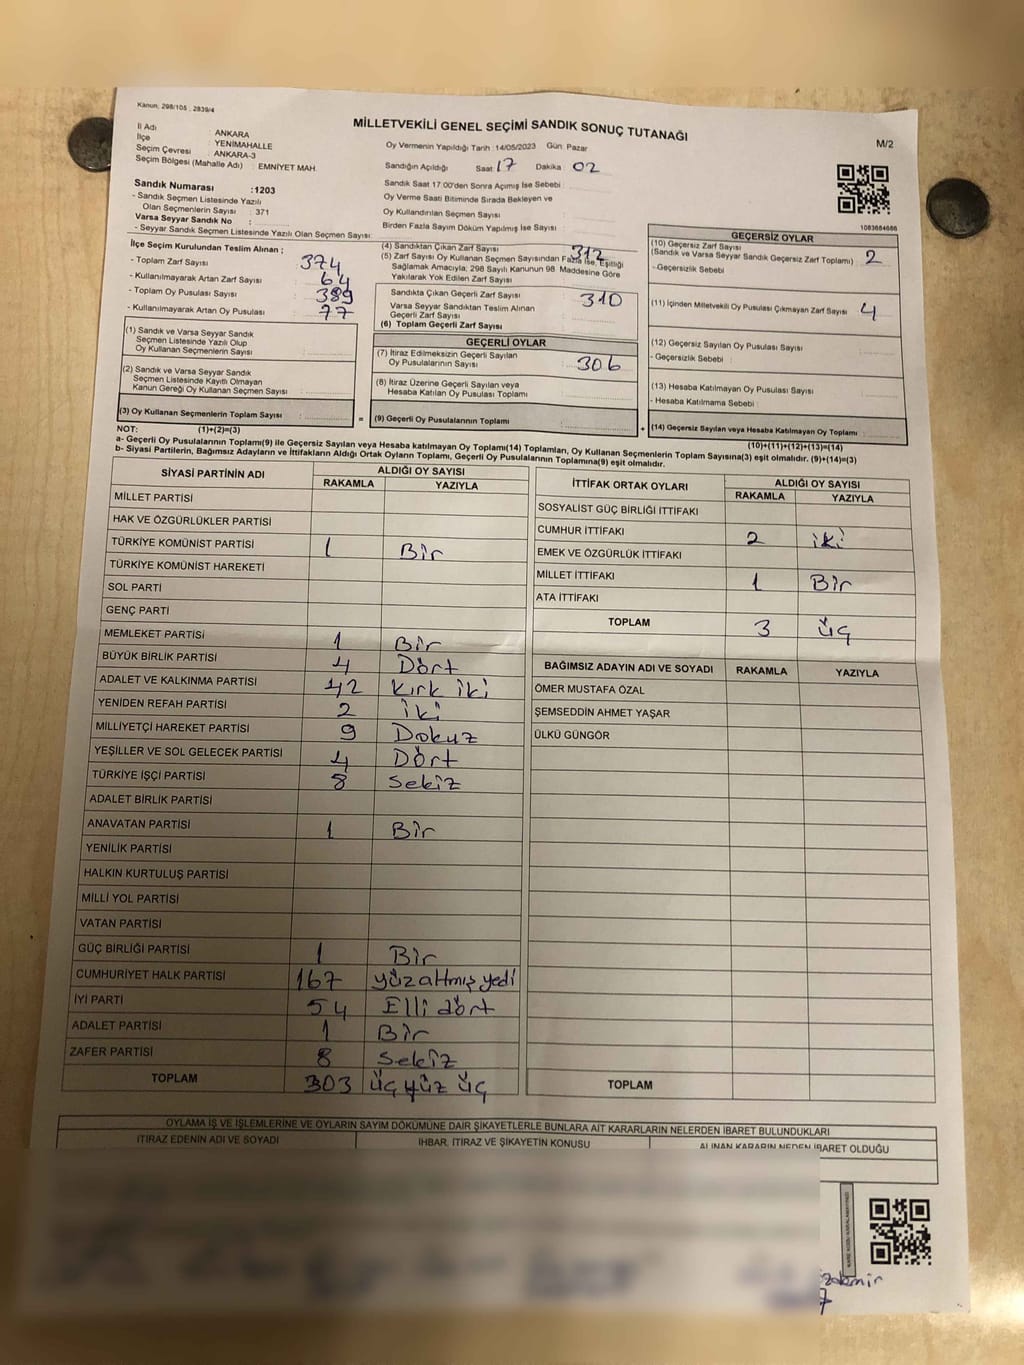 Kanun, 298/105 ; 2839/4
MİLLETVEKİLİ GENEL SEÇİMİ SANDIK SONUÇ TUTANAĞI
M/2
İl Adı ANKARA
İlçe YENİMAHALLE
Seçim Çevresi ANKARA-3
Seçim Bölgesi (Mahalle Adı) : EMNİYET MAH.
Oy Vermenin Yapıldığı Tarih :14/05/2023 Gün: Pazar
Sandığın Açıldığı Saat 17 Dakika 02
Sandık Saat 17:00'den Sonra Açımış İse Sebebi :
Oy Verme Saati Bitiminde Sırada Bekleyen ve
Oy Kullandırılan Seçmen Sayısı
Birden Fazla Sayım Döküm Yapılmış İse Sayısı :
Sandık Numarası :1203
- Sandık Seçmen Listesinde Yazılı
Olan Seçmenlerin Sayısı : 371
Varsa Seyyar Sandık No :
- Seyyar Sandık Seçmen Listesinde Yazılı Olan Seçmen Sayısı:
1083664666
İlçe Seçim Kurulundan Teslim Alınan ;
- Toplam Zarf Sayısı 374
- Kullanılmayarak Artan Zarf Sayısı 64
- Toplam Oy Pusulası Sayısı 389
- Kullanılmayarak Artan Oy Pusulası 77
(1) Sandık ve Varsa Seyyar Sandık
Seçmen Listesinde Yazılı Olup
Oy Kullanan Seçmenlerin Sayısı
(2) Sandık ve Varsa Seyyar Sandık
Seçmen Listesinde Kayıtlı Olmayan
Kanun Gereği Oy Kullanan Seçmen Sayısı :
(3) Oy Kullanan Seçmenlerin Toplam Sayısı :
(1)+(2)=(3)
(4) Sandıktan Çıkan Zarf Sayısı 312
(5) Zarf Sayısı Oy Kullanan Seçmen Sayısından Fazla İse, Eşitliği
Sağlamak Amacıyla; 298 Sayılı Kanunun 98. Maddesine Göre
Yakılarak Yok Edilen Zarf Sayısı
Sandıkta Çıkan Geçerli Zarf Sayısı 310
Varsa Seyyar Sandıktan Teslim Alınan
Geçerli Zarf Sayısı
(6) Toplam Geçerli Zarf Sayısı
GEÇERLİ OYLAR
(7) İtiraz Edilmeksizin Geçerli Sayılan
Oy Pusulalarının Sayısı 306
(8) İtiraz Üzerine Geçerli Sayılan veya
Hesaba Katılan Oy Pusulası Toplamı
= (9) Geçerli Oy Pusulalarının Toplamı
GEÇERSİZ OYLAR
(10) Geçersiz Zarf Sayısı
(Sandık ve Varsa Seyyar Sandık Geçersiz Zarf Toplamı) 2
- Geçersizlik Sebebi
(11) İçinden Milletvekili Oy Pusulası Çıkmayan Zarf Sayısı 4
(12) Geçersiz Sayılan Oy Pusulası Sayısı
- Geçersizlik Sebebi :
(13) Hesaba Katılmayan Oy Pusulası Sayısı
- Hesaba Katılmama Sebebi :
+ (14) Geçersiz Sayılan veya Hesaba Katılmayan Oy Toplamı
(10)+(11)+(12)+(13)=(14)
NOT:
a- Geçerli Oy Pusulalarının Toplamı(9) ile Geçersiz Sayılan veya Hesaba katılmayan Oy Toplamı(14) Toplamları, Oy Kullanan Seçmenlerin Toplam Sayısına(3) eşit olmalıdır. (9)+(14)=(3)
b- Siyasi Partilerin, Bağımsız Adayların ve İttifakların Aldığı Ortak Oyların Toplamı, Geçerli Oy Pusulalarının Toplamına(9) eşit olmalıdır.
SİYASİ PARTİNİN ADI
ALDIĞI OY SAYISI
RAKAMLA YAZIYLA
MİLLET PARTİSİ
HAK VE ÖZGÜRLÜKLER PARTİSİ
TÜRKİYE KOMÜNİST PARTİSİ 1 Bir
TÜRKİYE KOMÜNİST HAREKETİ
SOL PARTİ
GENÇ PARTİ
MEMLEKET PARTİSİ 1 Bir
BÜYÜK BİRLİK PARTİSİ 4 Dört
ADALET VE KALKINMA PARTİSİ 42 Kırk iki
YENİDEN REFAH PARTİSİ 2 iki
MİLLİYETÇİ HAREKET PARTİSİ 9 Dokuz
YEŞİLLER VE SOL GELECEK PARTİSİ 4 Dört
TÜRKİYE İŞÇİ PARTİSİ 8 Sekiz
ADALET BİRLİK PARTİSİ
ANAVATAN PARTİSİ 1 Bir
YENİLİK PARTİSİ
HALKIN KURTULUŞ PARTİSİ
MİLLİ YOL PARTİSİ
VATAN PARTİSİ
GÜÇ BİRLİĞİ PARTİSİ 1 Bir
CUMHURİYET HALK PARTİSİ 167 yüzaltmış yedi
İYİ PARTİ 54 Elli dört
ADALET PARTİSİ 1 Bir
ZAFER PARTİSİ 8 Sekiz
TOPLAM 303 üç yüz üç
İTTİFAK ORTAK OYLARI
ALDIĞI OY SAYISI
RAKAMLA YAZIYLA
SOSYALİST GÜÇ BİRLİĞİ İTTİFAKI
CUMHUR İTTİFAKI 2 iki
EMEK VE ÖZGÜRLÜK İTTİFAKI
MİLLET İTTİFAKI 1 Bir
ATA İTTİFAKI
TOPLAM 3 üç
BAĞIMSIZ ADAYIN ADI VE SOYADI RAKAMLA YAZIYLA
ÖMER MUSTAFA ÖZAL
ŞEMSEDDİN AHMET YAŞAR
ÜLKÜ GÜNGÖR
TOPLAM
OYLAMA İŞ VE İŞLEMLERİNE VE OYLARIN SAYIM DÖKÜMÜNE DAİR ŞİKAYETLERLE BUNLARA AİT KARARLARIN NELERDEN İBARET BULUNDUKLARI
İTİRAZ EDENİN ADI VE SOYADI
İHBAR, İTİRAZ VE ŞİKAYETİN KONUSU
ALINAN KARARIN NEDEN İBARET OLDUĞU